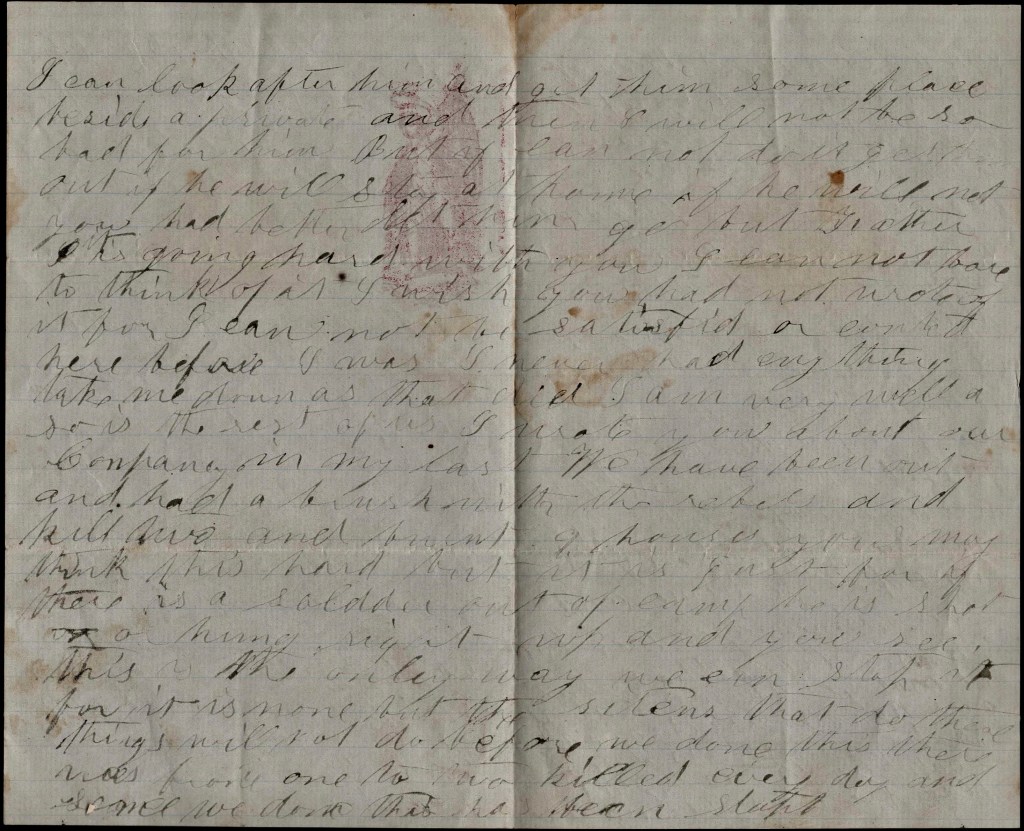 I can look after him and get him some place
beside a private and then I will not be so
bad for him But if I can not do it get
out if he will stay at home if he will not
you had better let him go but Mother
this going hard with you I can not bare
to think of it I wish you had not wroten
it for I can not be satisfid or contit
here before I was I never had eny thing
take me down as that did I am very well a
so is the rest of us I wrote you about our
Company in my last We have been out
and had a brush with the rebels and
kill two and burnt 9 houses you may
think this hard but it is just for if
there is a soldder out of camp he is shot
or hung right up and you see
this is the only way we can stop it
for it is none but the sitens that do these
things will not do before we done this there
was from one to two killed every day and
since we done this has been stopt